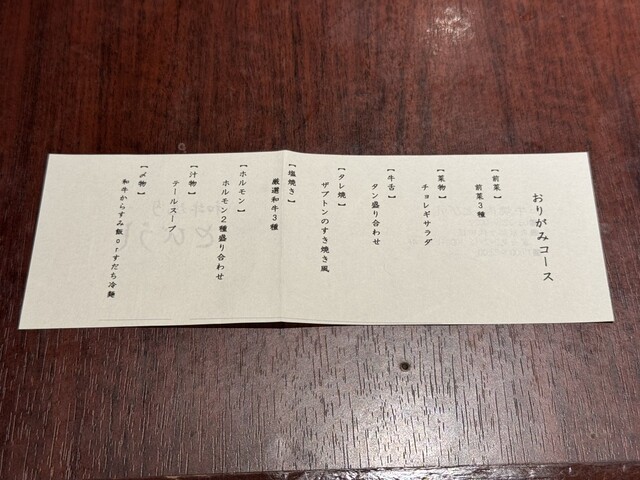 おりがみコース
【前菜】
前菜3種
【菜物】
チョレギサラダ
【牛舌】
タン盛り合わせ
【タレ焼】
ザブトンのすき焼き風
【塩焼き】
厳選和牛3種
【ホルモン】
ホルモン2種盛り合わせ
【汁物】
テールスープ
【〆物】
和牛からすみ飯orすだち冷麺